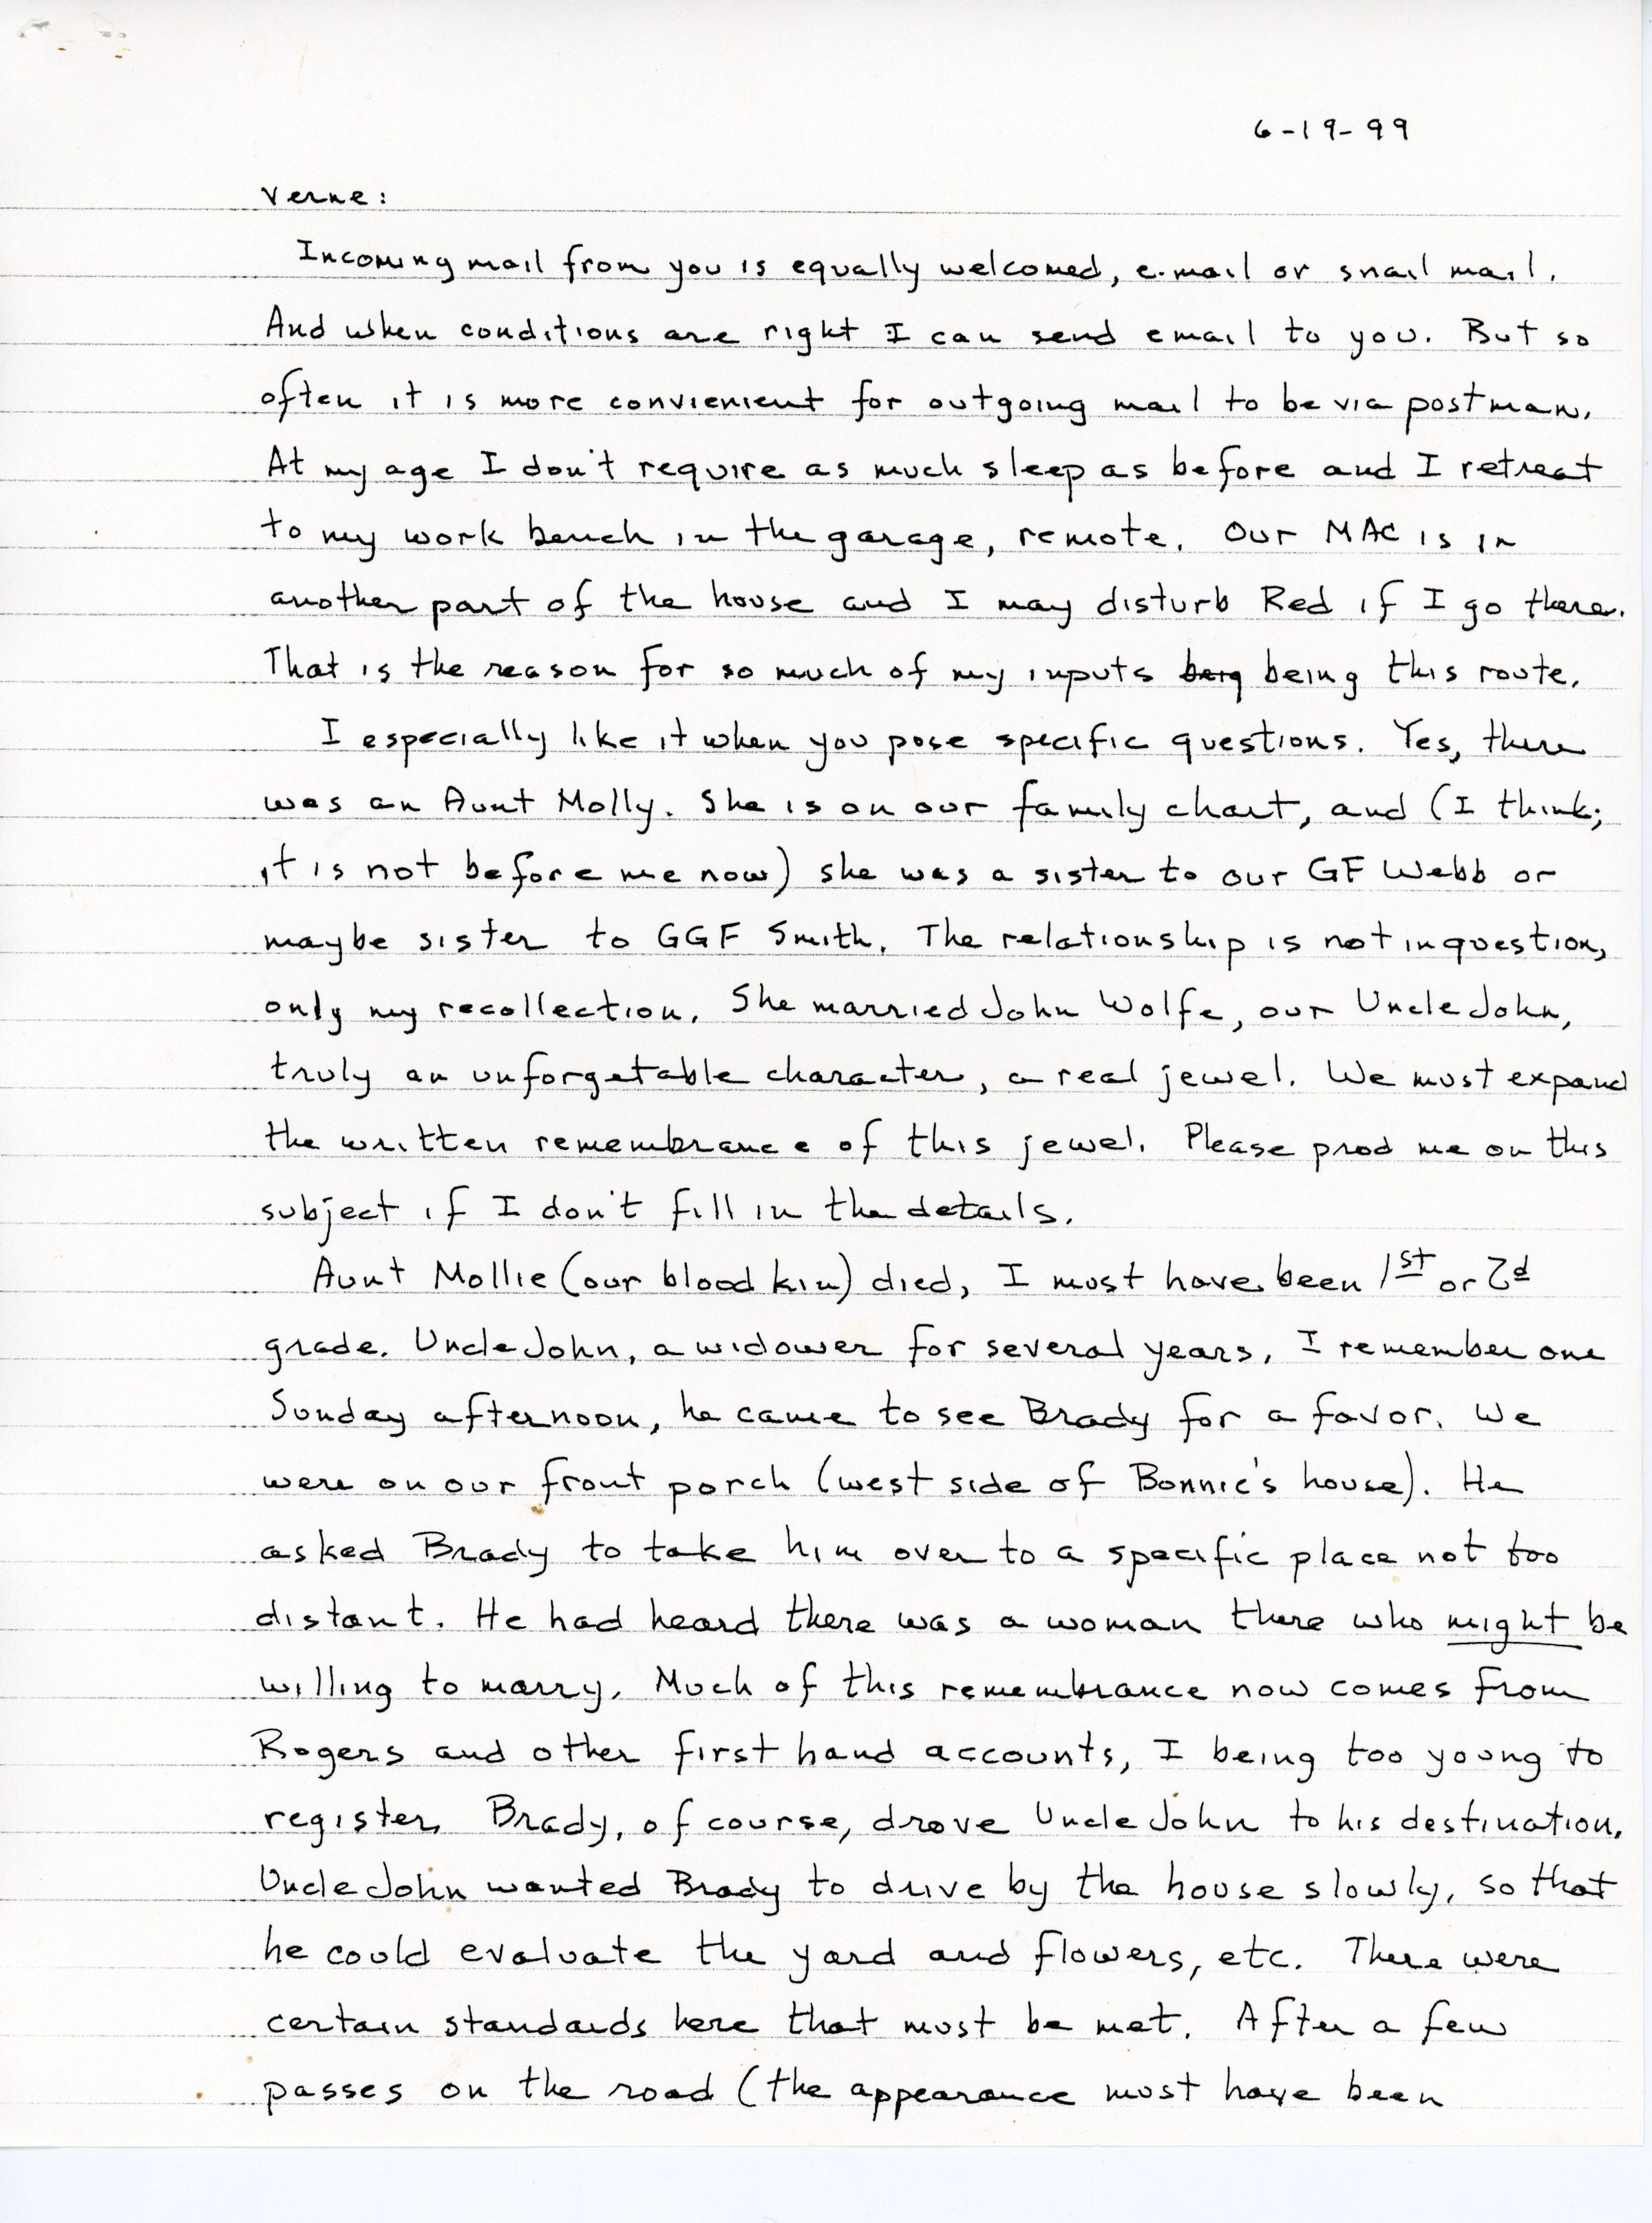 6-19-99
Verne:
Incoming mail from you is equally welcomed, e-mail or snail mail.
And when conditions are right I can send email to you. But so
often it is more convienient for outgoing mail to be via postman.
At my age I don't require as much sleep as before and I retreat
to my work bench in the garage, remote. Our MAC is in
another part of the house and I may disturb Red if I go there.
That is the reason for so much of my inputs being this route.
I especially like it when you pose specific questions. Yes, there
was an Aunt Molly. She is on our family chart, and (I think;
it is not before me now) she was a sister to our GF Webb or
maybe sister to GGF Smith. The relationship is not in question,
only my recollection. She married John Wolfe, our Uncle John,
truly an unforgetable character, a real jewel. We must expand
the written remembrance of this jewel. Please prod me on this
subject if I don't fill in the details.
Aunt Mollie (our blood kin) died, I must have been 1st or 2d
grade. Uncle John, a widower for several years, I remember one
Sunday afternoon, he came to see Brady for a favor. We
were on our front porch (west side of Bonnie's house). He
asked Brady to take him over to a specific place not too
distant. He had heard there was a woman there who might be
willing to marry. Much of this remembrance now comes from
Rogers and other first hand accounts, I being too young to
register. Brady, of course, drove Uncle John to his destination.
Uncle John wanted Brady to drive by the house slowly, so that
he could evaluate the yard and flowers, etc. There were
certain standards here that must be met. After a few
passes on the road (the appearance must have been